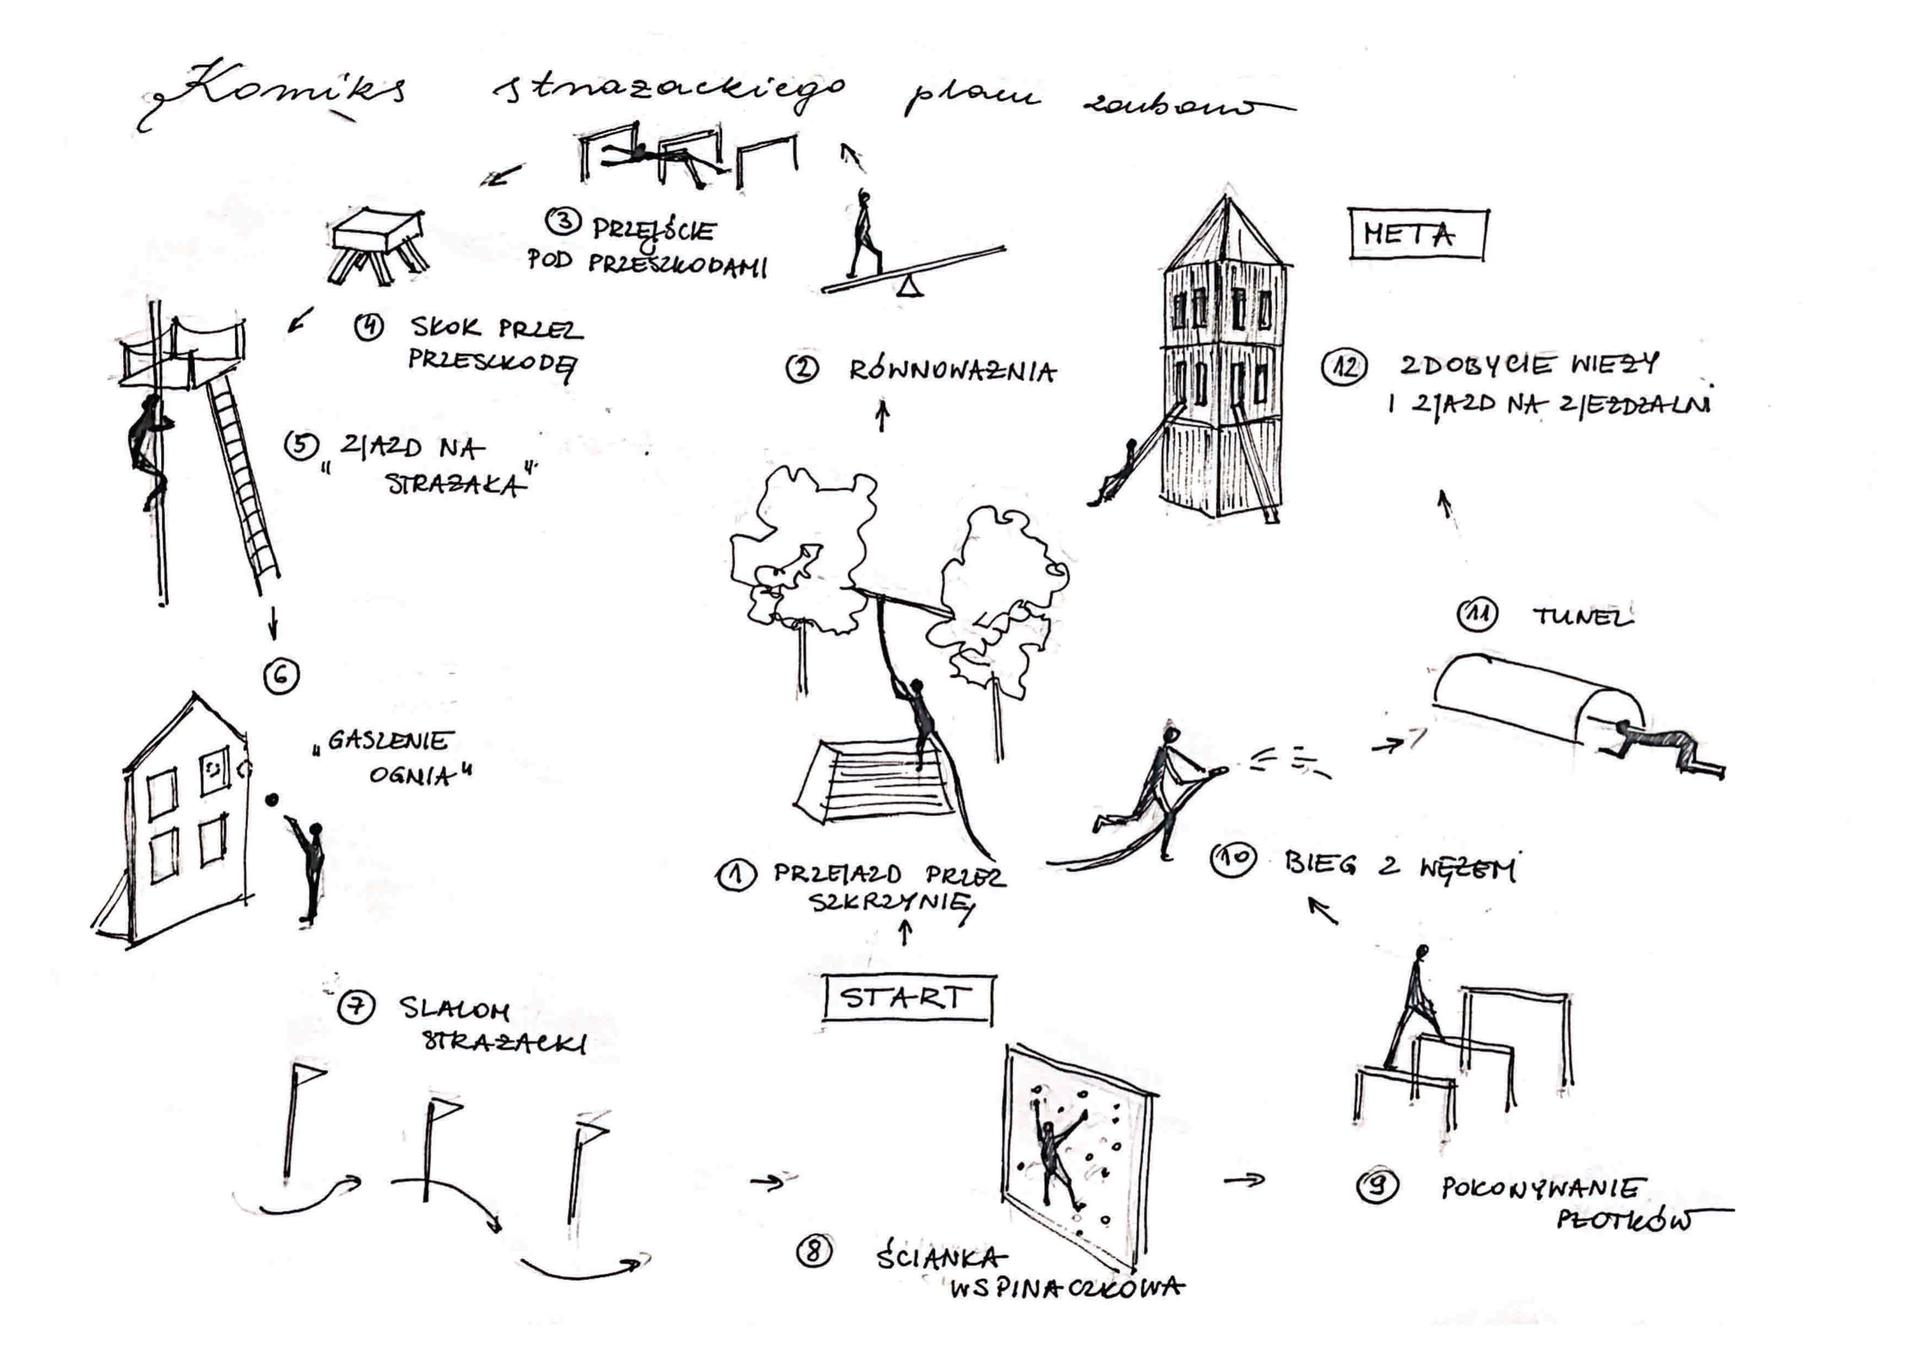 Komiks strażackiego placu zabaw
META
3 PRZEJŚCIE
POD PRZESZKODAMI
4 SKOK PRZEZ
PRZESZKODĘ
2 RÓWNOWAŻNIA
12 ZDOBYCIE WIEŻY
I ZJAZD NA ZJEŻDŻALNI
5 ZJAZD NA
„STRAŻAKA"
6
„GASZENIE
OGNIA"
11 TUNEL
1 PRZEJAZD PRZEZ
SZKRZYNIĘ
10 BIEG Z WĘŻEM
START
7 SLALOM
STRAŻACKI
9 POKONYWANIE
PŁOTKÓW
8 ŚCIANKA
WSPINACZKOWA